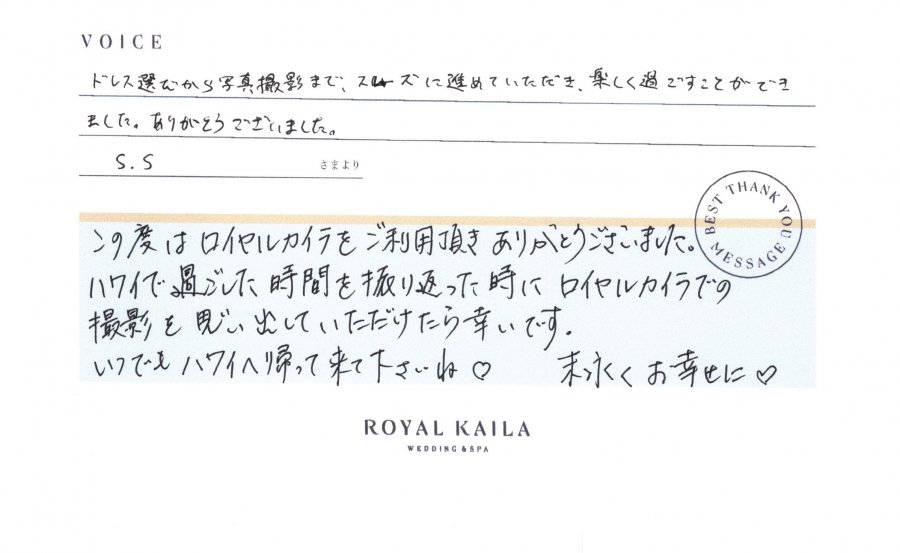 VOICE
ドレス選びから写真撮影まで、スムーズに進めていただき、楽しく過ごすことができ
ました。ありがとうございました。
S.S さまより
BEST THANK YOU MESSAGE
この度はロイヤルカイラをご利用頂きありがとうございました。
ハワイで過ごした時間を振り返った時にロイヤルカイラでの
撮影を思い出していただけたら幸いです。
いつでもハワイへ帰って来て下さいね♡ 末永くお幸せに♡
ROYAL KAILA
WEDDING & SPA